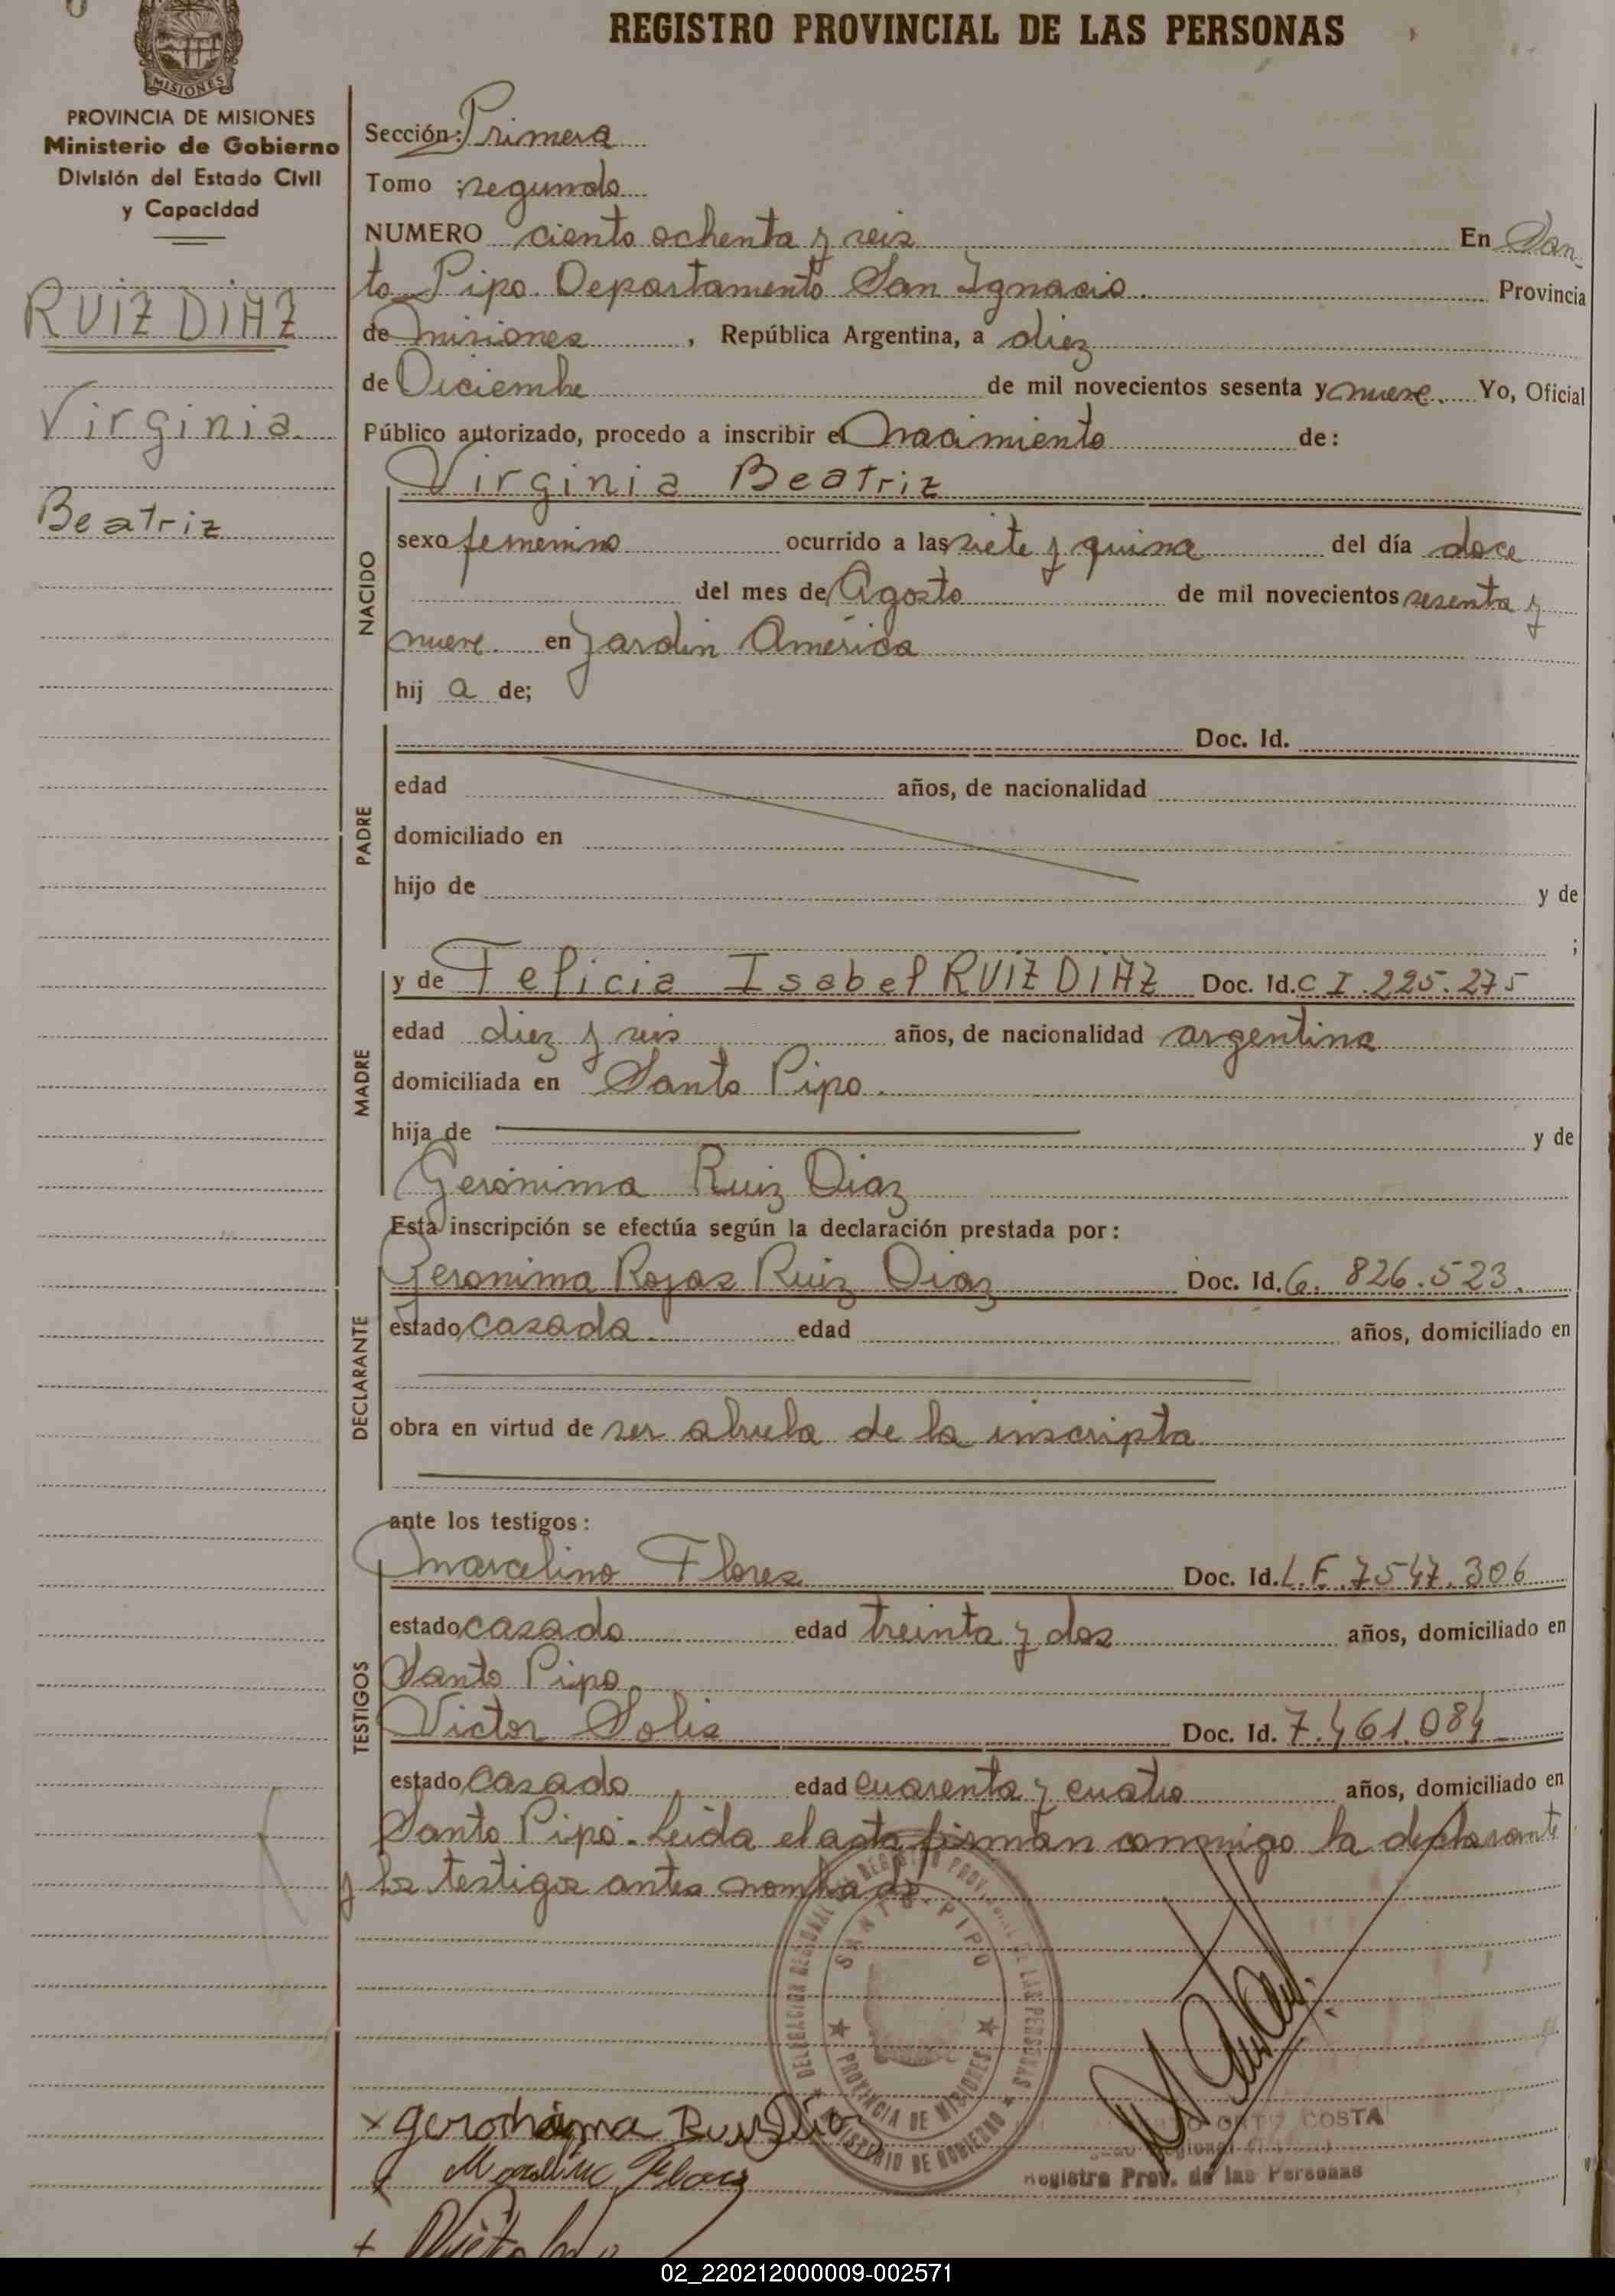 REGISTRO PROVINCIAL DE LAS PERSONAS
MISIONES
PROVINCIA DE MISIONES
Ministerio de Gobierno
División del Estado Civil
y Capacidad
RUIZ DIAZ
Virginia
Beatriz
Sección: Primera
Tomo : segundo
NUMERO ciento ochenta y seis En San-
to Pipo Departamento San Ignacio. Provincia
de misiones, República Argentina, a diez
de Diciembre de mil novecientos sesenta y nueve. Yo, Oficial
Público autorizado, procedo a inscribir el nacimiento de:
NACIDO
Virginia Beatriz
sexo femenino ocurrido a las siete y quince del día doce
del mes de Agosto de mil novecientos sesenta y
nueve. en Jardin América
hij a de;
PADRE
Doc. Id.
edad años, de nacionalidad
domiciliado en
hijo de y de
;
MADRE
y de Felicia Isabel RUIZ DIAZ Doc. Id. C I. 225.275
edad diez y seis años, de nacionalidad argentina
domiciliada en Santo Pipo.
hija de y de
Gerónima Ruiz Diaz
Esta inscripción se efectúa según la declaración prestada por:
DECLARANTE
Geronima Rojas Ruiz Diaz Doc. Id. 6. 826.523.
estado casada. edad años, domiciliado en
obra en virtud de ser abuela de la inscripta
ante los testigos:
TESTIGOS
Marcelino Flores Doc. Id. L.E. 7547.306
estado casado edad treinta y dos años, domiciliado en
Santo Pipo.
Victor Solis Doc. Id. 7.461.084
estado casado edad cuarenta y cuatro años, domiciliado en
Santo Pipó. Leida el acta firman conmigo la declarante
y los testigos antes nombrado.
DELEGACION REGIONAL REGISTRO PROVINCIAL DE LAS PERSONAS
SANTO PIPO
PROVINCIA DE MISIONES
MINISTERIO DE GOBIERNO
x Geronima Ruiz Dias
x Marcelino Flores
x
ORTIZ COSTA
Registro Prov. de las Personas
02_220212000009-002571